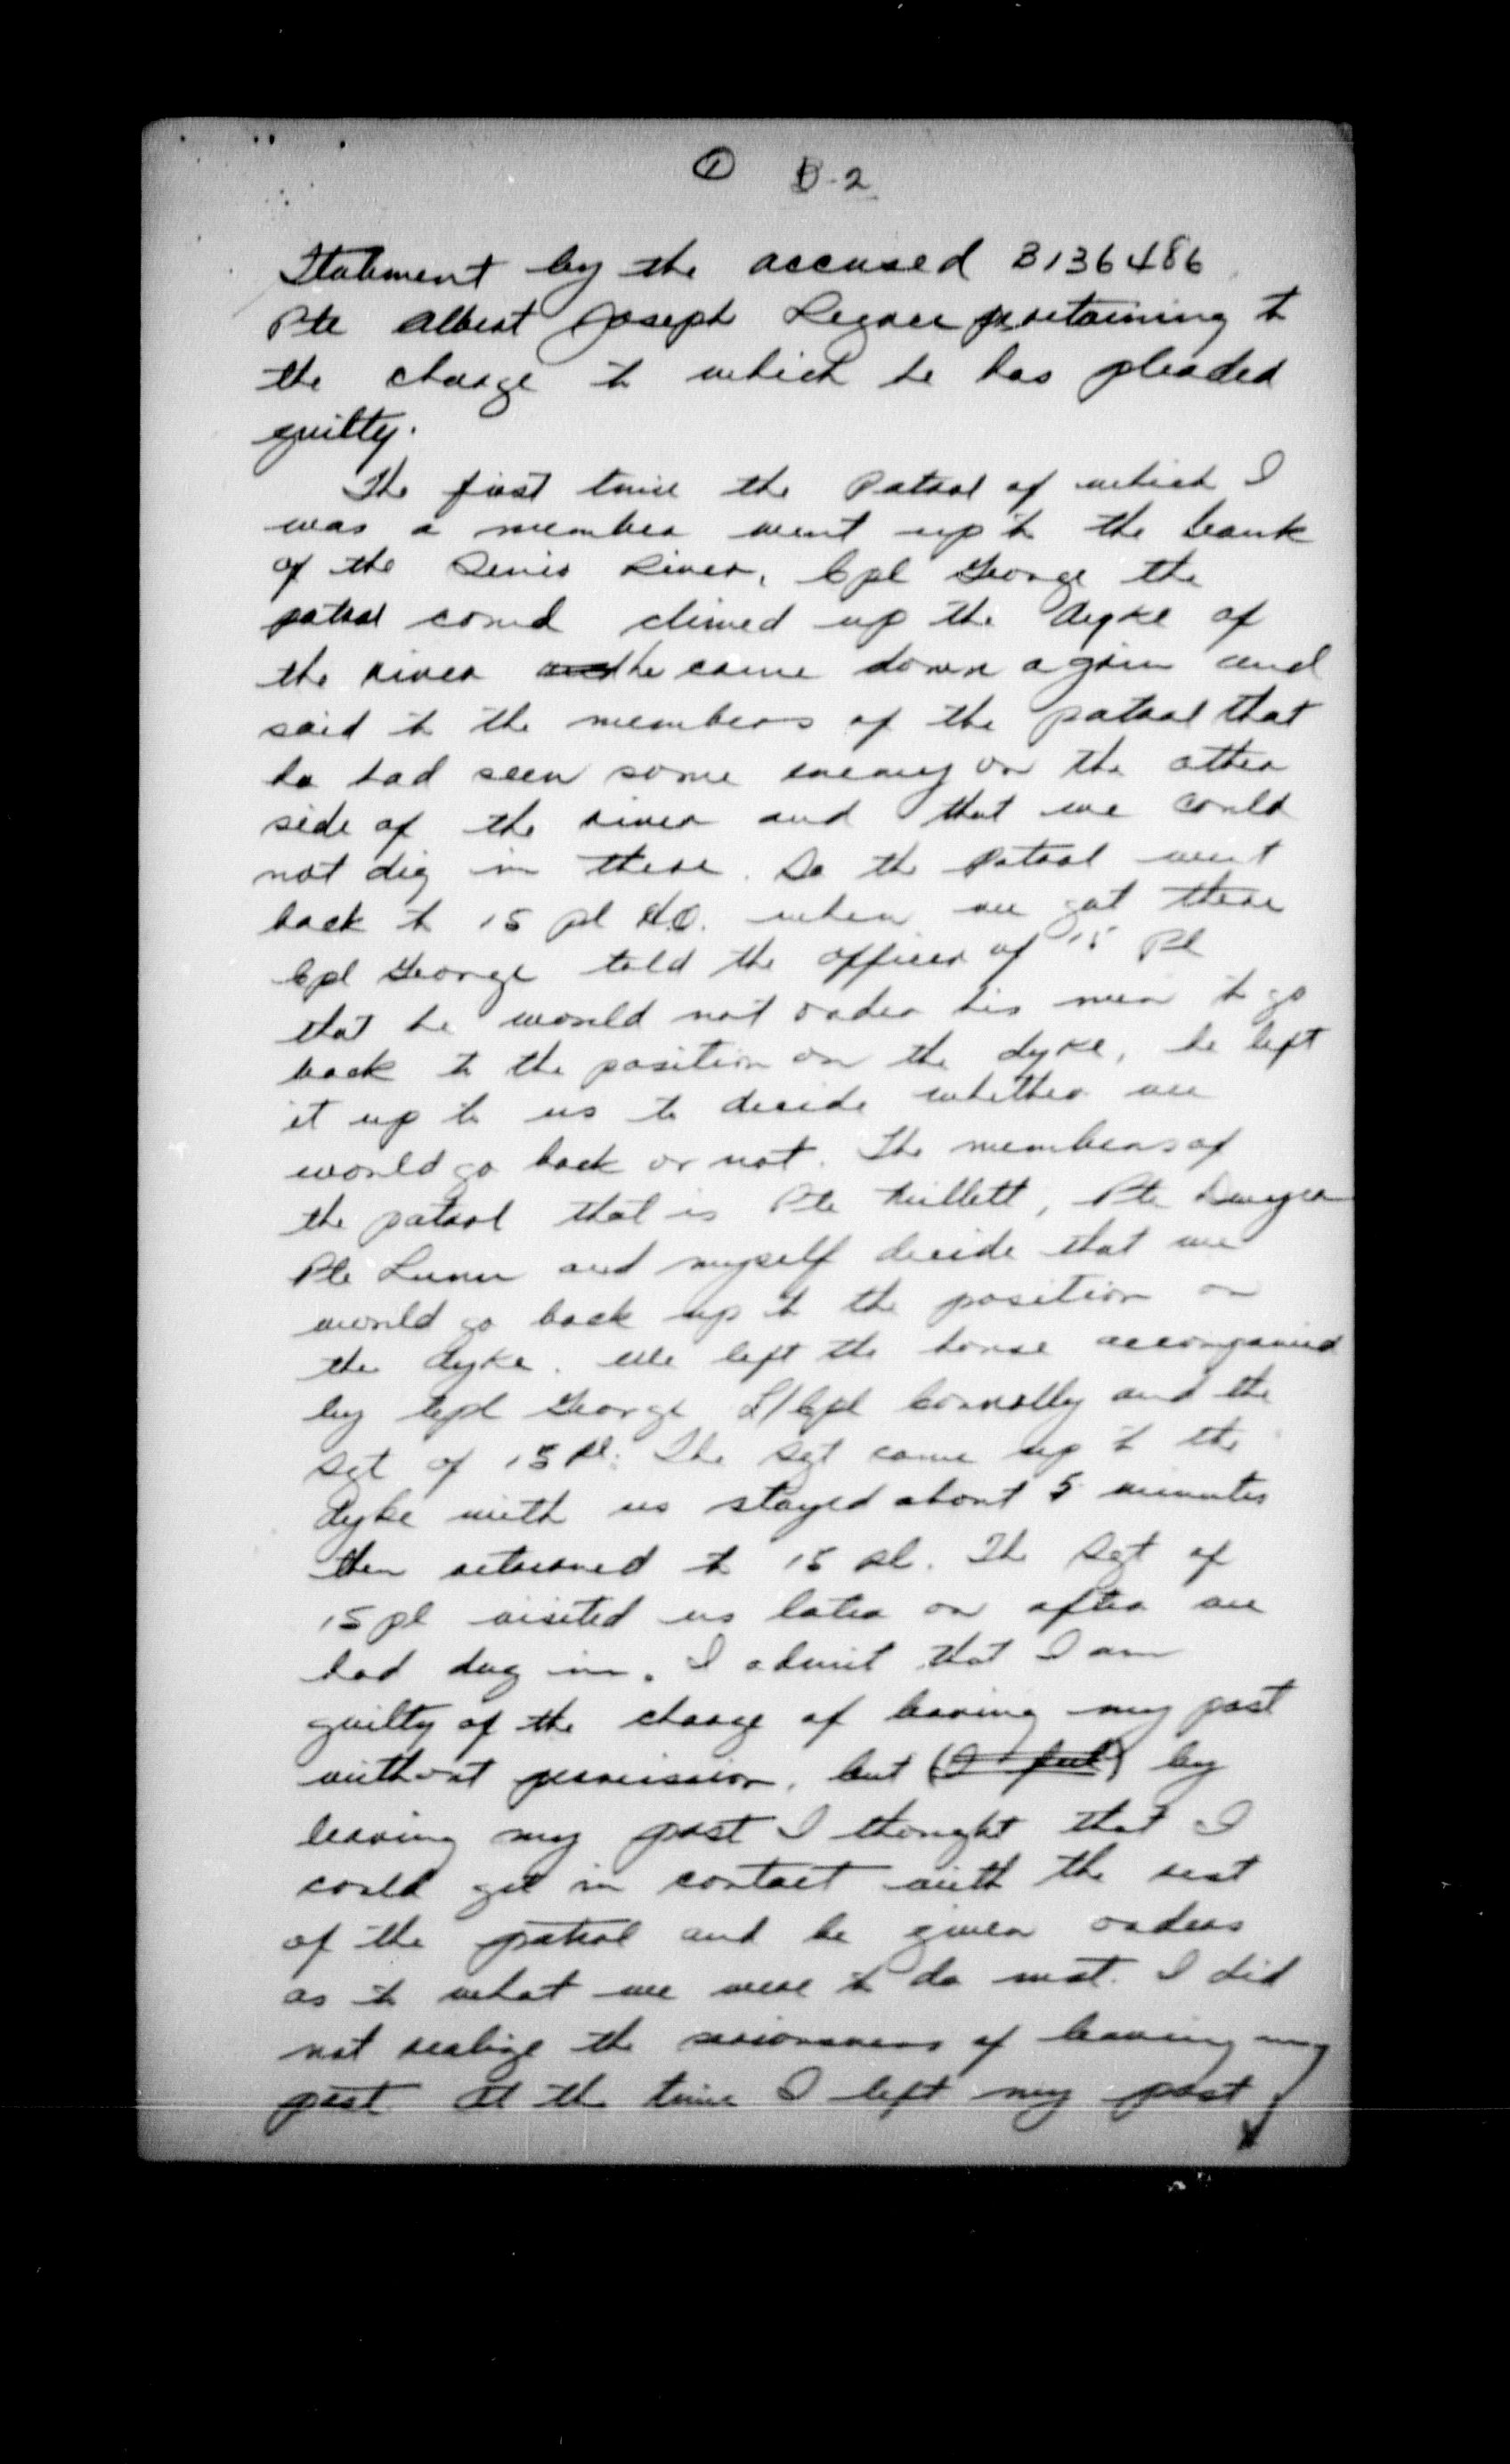 ① B-2
Statement by the accused B136486
Pte Albert Joseph pertaining to
the charge to which he has pleaded
guilty.
The first time the Patrol of which I
was a member went up to the bank
of the Senio River, Cpl George the
patrol comd climed up the dyke of
the river he came down again and
said to the members of the patrol that
he had seen some enemy on the other
side of the river and that we could
not dig in there. So the Patrol went
back to 15 pl H.Q. when we got there
Cpl George told the officer of 15 Pl
that he would not order his men to go
back to the position on the dyke, he left
it up to us to decide whether we
would go back or not. The members of
the patrol that is Pte Millett, Pte Dwyer
Pte Lunn and myself decide that we
would go back up to the position on
the dyke. We left the house accompanied
by Cpl George L/Cpl Connolly and the
Sgt of 15 Pl. The Sgt came up to the
dyke with us stayed about 5 minutes
then returned to 15 pl. The Sgt of
15 pl visited us later on after we
had dug in. I admit that I am
guilty of the charge of leaving my post
without permission, but (I feel) by
leaving my post I thought that I
could get in contact with the rest
of the patrol and be given orders
as to what we were to do next. I did
not realize the seriousness of leaving my
post at the time I left my post